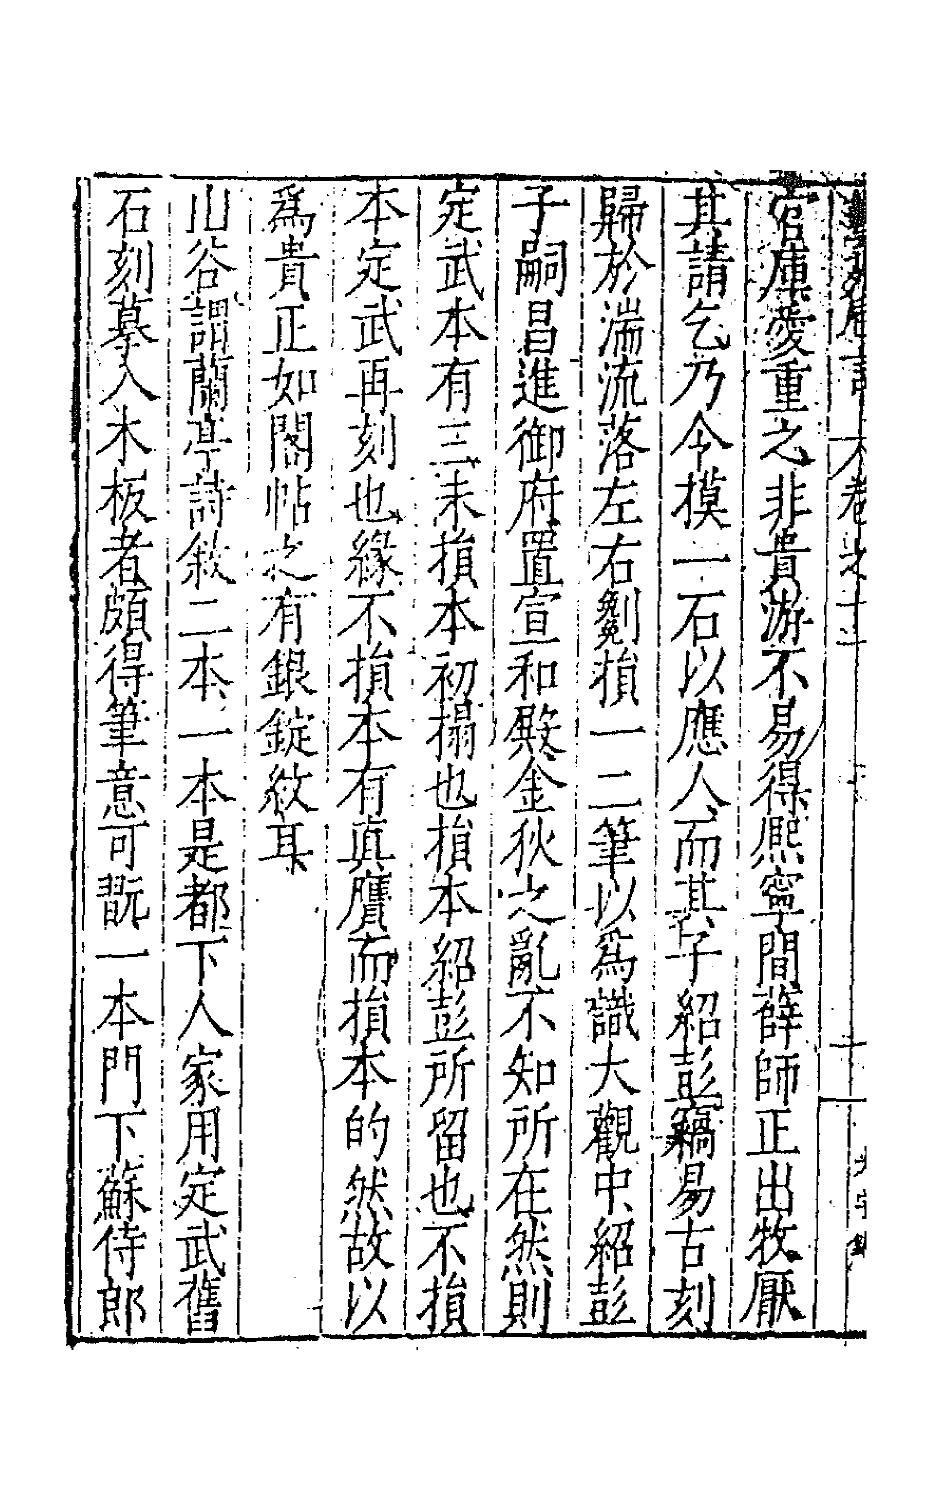 卷之十二
官庫愛重之非貴游不易得熈寧間薛師正出牧厭
其請乞乃令摸一石以應人而其子紹彭竊易古刻
歸於湍流落左右劖損一二筆以爲識大觀中紹彭
子嗣昌進御府置宣和殿金狄之亂不知所在然則
定武本有三未損本初搨也損本紹彭所留也不損
本定武再刻也緣不損本有真贋而損本的然故以
爲貴正如閣帖之有銀錠紋耳
山谷謂蘭亭詩敘二本一本是都下人家用定武舊
石刻摹入木板者頗得筆意可翫一本門下蘇侍郎